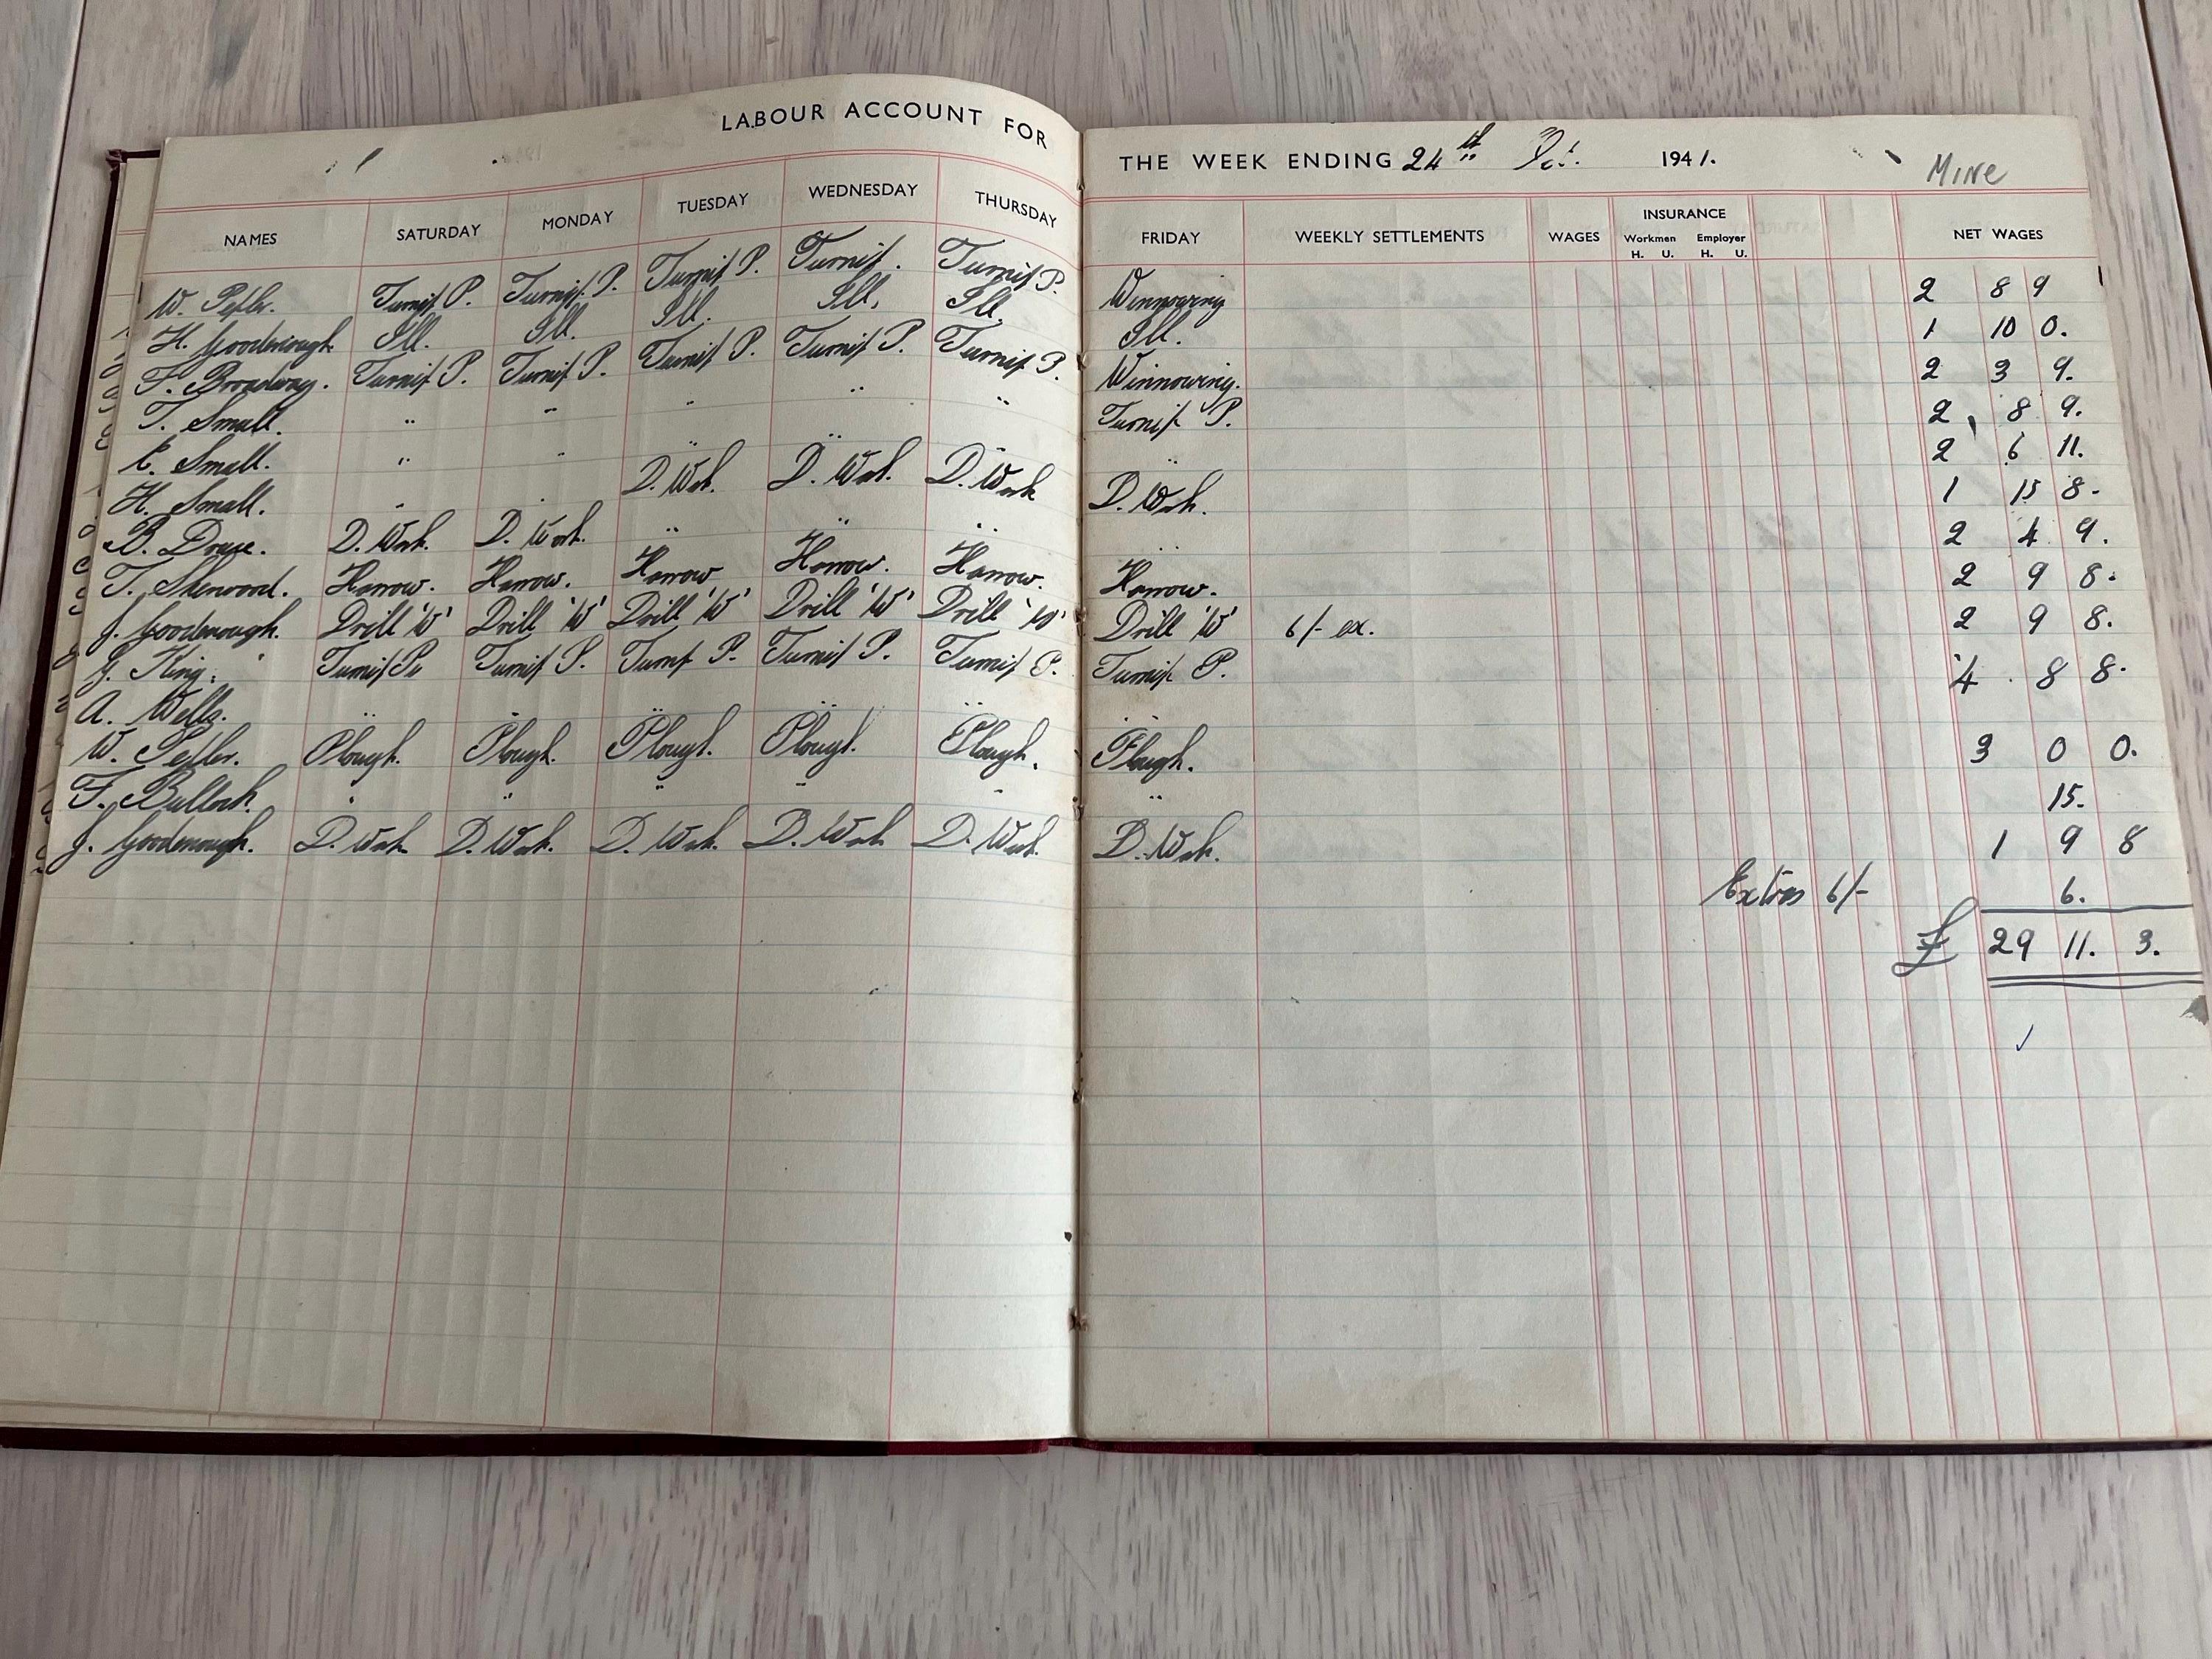 LABOUR ACCOUNT FOR THE WEEK ENDING 24th Oct. 1941.
Mine
NAMES SATURDAY MONDAY TUESDAY WEDNESDAY THURSDAY FRIDAY WEEKLY SETTLEMENTS WAGES INSURANCE NET WAGES
Workmen Employer
H. U. H. U.
W. Turnip P. Turnip P. Turnip P. Turnip. Turnip P. Winnowing 2 8 9
H. Goodenough Ill. Ill. Ill. Ill. Ill. Ill. 1 10 0.
F. Broadway. Turnip P. Turnip P. Turnip P. Turnip P. Turnip P. Winnowing. 2 3 9.
T. Small. " " " " " Turnip P. 2 8 9.
E. Small. " " " " " " 2 6 11.
H. Small. " " D. Work. D. Work. D. Work D. Work. 1 15 8.
B. D. Work. D. Work. " " " " 2 4 9.
T. Sherwood. Harrow. Harrow. Harrow Harrow. Harrow. Harrow. 2 9 8.
J. Goodenough. Drill 'W' Drill 'W' Drill 'W' Drill 'W' Drill 'W' Drill 'W' 6/- ex. 2 9 8.
G. King. Turnip P. Turnip P. Turnip P. Turnip P. Turnip P. Turnip P. 4 8 8.
A. Wells. " " " " " "
W. Plough. Plough. Plough. Plough. Plough. Plough. 3 0 0.
F. Bullock. " " " " " " 15.
J. Goodenough. D. Work D. Work. D. Work. D. Work D. Work. D. Work. 1 9 8
Extras 6/- 6.
£ 29 11. 3.